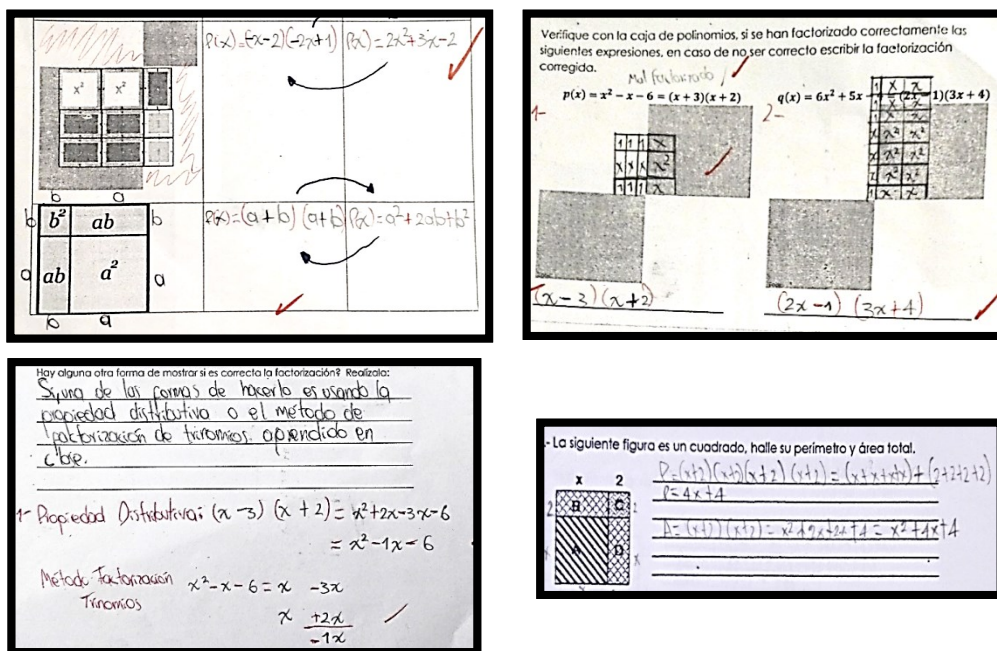 P(x)=(-x-2)(-2x+1) P(x)=2x²+3x-2
x² x²
b a
b b² ab b
a ab a² a
b a
P(x)=(a+b)(a+b) P(x)=a²+2ab+b²
Verifique con la caja de polinomios, si se han factorizado correctamente las
siguientes expresiones, en caso de no ser correcto escribir la factorización
corregida.
Mal factorizado
p(x) = x² − x − 6 = (x + 3)(x + 2)
q(x) = 6x² + 5x (2x − 1)(3x + 4)
1-
1 1 1 x
x x x x²
1 1 1 x
(x-3)(x+2)
2-
1 x x
1 x x
1 x x
x x² x²
x x² x²
x² x²
1 x x
(2x-1) (3x+4)
Hay alguna otra forma de mostrar si es correcta la factorización? Realízala:
Si, una de las formas de hacerlo es usando la
propiedad distributiva o el método de
factorización de trinomios aprendido en
clase.
1- Propiedad Distributiva: (x-3) (x+2) = x²+2x-3x-6
= x²-1x-6
Método Factorización x²-x-6 = x -3x
Trinomios x +2x
-1x
.- La siguiente figura es un cuadrado, halle su perímetro y área total.
x 2
2 B C
A D x
P=(x+2)(x+2)(x+2)(x+2)=(x+x+x+x)+(2+2+2+2)
P=4x+4
A=(x+2)(x+2)=x²+2x+2x+4=x²+4x+4